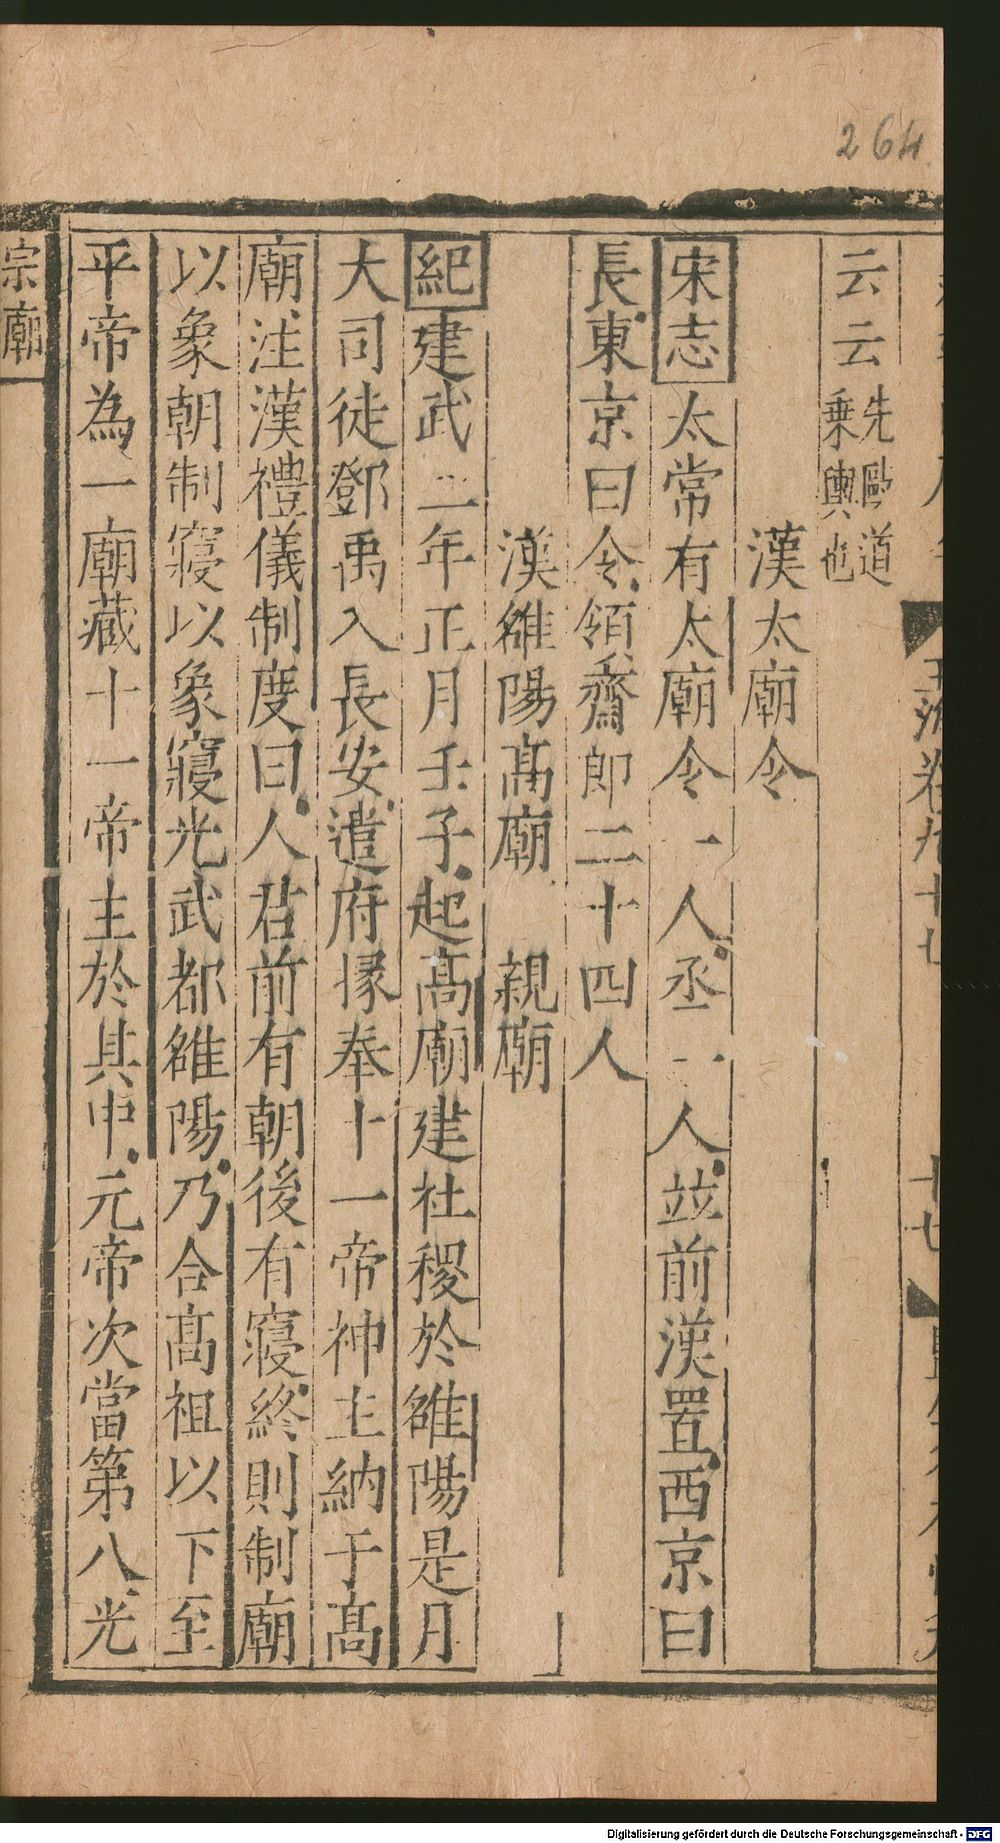 264
玉海卷九十七
十七
云云先敺道乗輿也
漢太廟令
宋志太常有太廟令一人丞一人竝前漢置西京曰
長東京曰令領齋郎二十四人
漢雒陽髙廟　親廟
紀建武二年正月壬子起髙廟建社稷於雒陽是月
大司徒鄧禹入長安遣府掾奉十一帝神主納于髙
廟注漢禮儀制度曰人君前有朝後有寑終則制廟
以象朝制寑以象寑光武都雒陽乃合髙祖以下至
平帝為一廟藏十一帝主於其中元帝次當第八光
宗廟
Digitalisierung gefördert durch die Deutsche Forschungsgemeinschaft - DFG